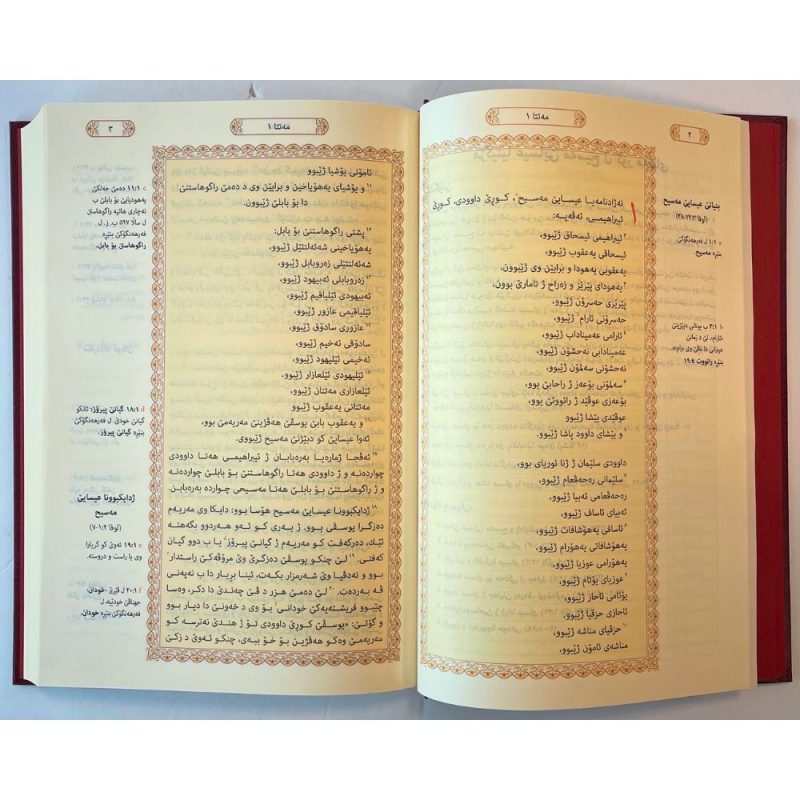 ٢
مەتتا ١
بنیاتێ عیسایێ مەسیح
(لوقا ٣: ٢٣-٣٨)
١:١ ل فەرهەنگۆکێ
بنێرە مەسیح
٣:١ ب یونانی دبێژیتن
ئارام، لێ د زمانێ
عیبرانی دا ناڤێ وی «رام»ە،
بنێرە رائووت ٤: ١٩
١ نەژادنامەیا عیسایێ مەسیح، کوڕێ داوودی، کوڕێ
ئیبراهیمی، ئەڤەیە:
٢ ئیبراهیمی ئیسحاق ژێبوو،
ئیسحاقی یەعقوب ژێبوو،
یەعقوبی یەهودا و برایێن وی ژێبوون،
٣ یەهودای پێرێز و زەراح ژ تاماری بوون،
پێرێزی حەسرۆن ژێبوو،
حەسرۆنی ئارام ژێبوو،
٤ ئارامی عەمیناداب ژێبوو،
عەمینادابی نەحشۆن ژێبوو،
نەحشۆنی سەلمۆن ژێبوو،
٥ سەلمۆنی بۆعەز ژ راحابێ بوو،
بۆعەزی عوڤێد ژ رائووتێ بوو،
عوڤێدی یێشا ژێبوو،
٦ و یێشای داوود پاشا ژێبوو،
داوودی سلێمان ژ ژنا ئوریای بوو،
٧ سلێمانی رەحەڤعام ژێبوو،
رەحەڤعامی ئەبیا ژێبوو،
ئەبیای ئاساف ژێبوو،
٨ ئاسافی یەهۆشافات ژێبوو،
یەهۆشافاتی یەهۆرام ژێبوو،
یەهۆرامی عوزیا ژێبوو،
٩ عوزیای یۆتام ژێبوو،
یۆتامی ئاحاز ژێبوو،
ئاحازی حزقیا ژێبوو،
١٠ حزقیای مناشە ژێبوو،
مناشەی ئامۆن ژێبوو،
مەتتا ١
٣
ئامۆنی یۆشیا ژێبوو
١١ و یۆشیای یەهۆیاخین و برایێن وی د دەمێ راگوهاستنێ
دا بۆ بابل ژێبوون.
١٢ پشتی راگوهاستنێ بۆ بابل:
یەهۆیاخینی شەئەلتئێل ژێبوو،
شەئەلتئێلی زەروبابل ژێبوو،
١٣ زەروبابلی ئەبیهود ژێبوو،
ئەبیهودی ئێلیاقیم ژێبوو،
ئێلیاقیمی عازور ژێبوو،
١٤ عازوری سادۆق ژێبوو،
سادۆقی ئەخیم ژێبوو،
ئەخیمی ئێلیهود ژێبوو،
١٥ ئێلیهودی ئێلعازار ژێبوو،
ئێلعازاری مەتتان ژێبوو،
مەتتانی یەعقوب ژێبوو
١٦ و یەعقوب بابێ یوسڤێ هەڤژینێ مەریەمێ بوو،
ئەوا عیسایێ کو دبێژنێ مەسیح ژێبووی.
١٧ ئەڤجا ژمارەیا بەرەبابان ژ ئیبراهیمی هەتا داوودی
چواردەنە و ژ داوودی هەتا راگوهاستنێ بۆ بابلێ چواردەنە
و ژ راگوهاستنێ بۆ بابلێ هەتا مەسیحی چواردە بەرەبابن.
١٨ ژدایکبوونا عیسایێ مەسیح هۆسا بوو: دایکا وی مەریەم
دەزگرا یوسڤی بوو، ژ بەری کو ئەو هەردوو بگەهنە
ئێک، دەرکەفت کو مەریەم ژ گیانێ پیرۆز ب دوو گیان
کەفتی. ١٩ لێ چنکو یوسڤێ دەزگرێ وێ مرۆڤەکێ راستدار
بوو و نەدڤیا وێ شەرمزار بکەت، ئینا بڕیار دا ب نهێنی
ڤە بەردەت. ٢٠ لێ دەمێ هزر د ڤێ چەندێ دا دکر، وەسا
چێبوو فریشتەیەکێ خودانی بۆ وی د خەونێ دا دیار بوو
و گۆتێ: «یوسڤێ کوڕێ داوودی تۆ ژ هندێ نەترسە کو
مەریەمێ وەکو هەڤژین بۆ خۆ ببەی، چنکو ئەوێ د زکێ
١١:١ دەمێ خەلکێ
یەهودیایێ بۆ بابلێ ب
نەچاری هاتیە راگوهاستن
ل سالا ٥٩٧ ب. ز. ل
راگوهاستن بۆ بابل.
١٨:١ گیانێ پیرۆز: ئانکو
گیانێ خودێ. ل فەرهەنگۆکێ
بنێرە گیانێ پیرۆز.
ژدایکبوونا عیسایێ
مەسیح
(لوقا ٢: ١-٧)
١٩:١ ئەوێ کو کریارا
وی یا راست و دروستە.
٢٠:١ ل ڤێرێ، خودان،
جهناڤێ خودێیە، ل
فەرهەنگۆکێ بنێرە خودان.